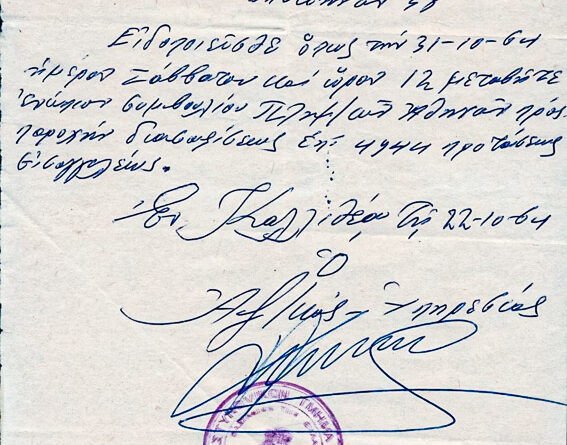 Εἰδοποιεῖσθε ὅπως τήν 31-10-64
ἡμέραν Σάββατον καί ὥραν 12 μεταβῆτε
ἐνώπιον συμβουλίου Πλημ/κῶν Ἀθηνῶν πρός
παροχήν διασαφίσεως ἐπί 4944 προτάσεως
Εἰσαγγελέως.
Ἐν Καλλιθέᾳ τῇ 22-10-64
Ὁ
Ἀξ/κός Ὑπηρεσίας
ΑΣΤΥΝΟΜΙΚΟΝ ΤΜΗΜΑ